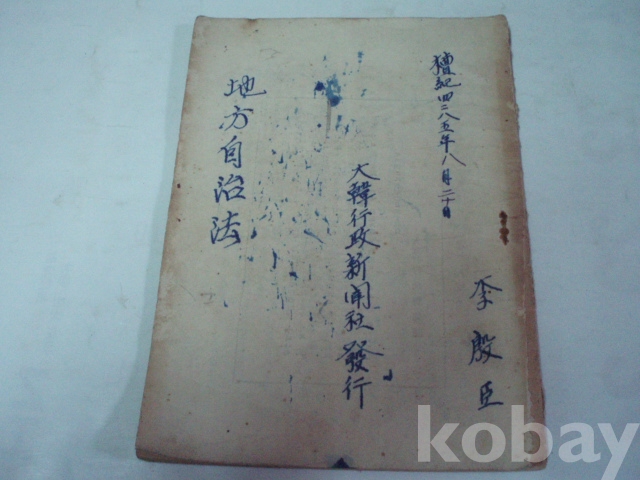 檀紀四二八五年八月二十日
李殷臣
大韓行政新聞社發行
地方自治法
kobay